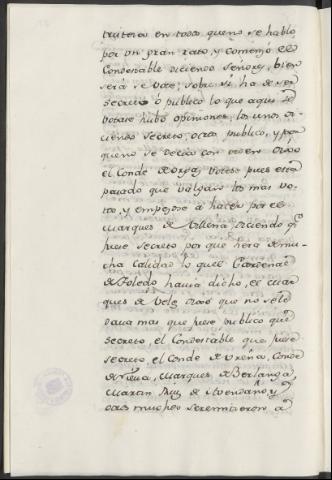 truxeron en cosa, que no se hablo
por un gran rato, y comenzo el
Condestable diciendo Señores, bien
será se vote, sobre si ha de ser
secreto ò publico lo que aqui se
votare hubo opiniones, los unos di-
ciendo secreto, otros publico, y por
que no se decia con orden dixo
el Conde votese pues esta
parado que valgan los mas vo-
tos, y empezose à hacer por el
Marques de Villena, diciendo qe.
fuese secreto por que hera de mu-
cha calidad lo que el Cardenal
de Toledo havia dicho, el Mar-
ques de Velez dixo que no se le
dava mas que fuese publico que
secreto, el Condestable que fuese
secreto, el Conde de Ureña, Conde
de Marques de Berlanga
Martin Ruiz de Avendaño, y
otros muchos se remitieron à